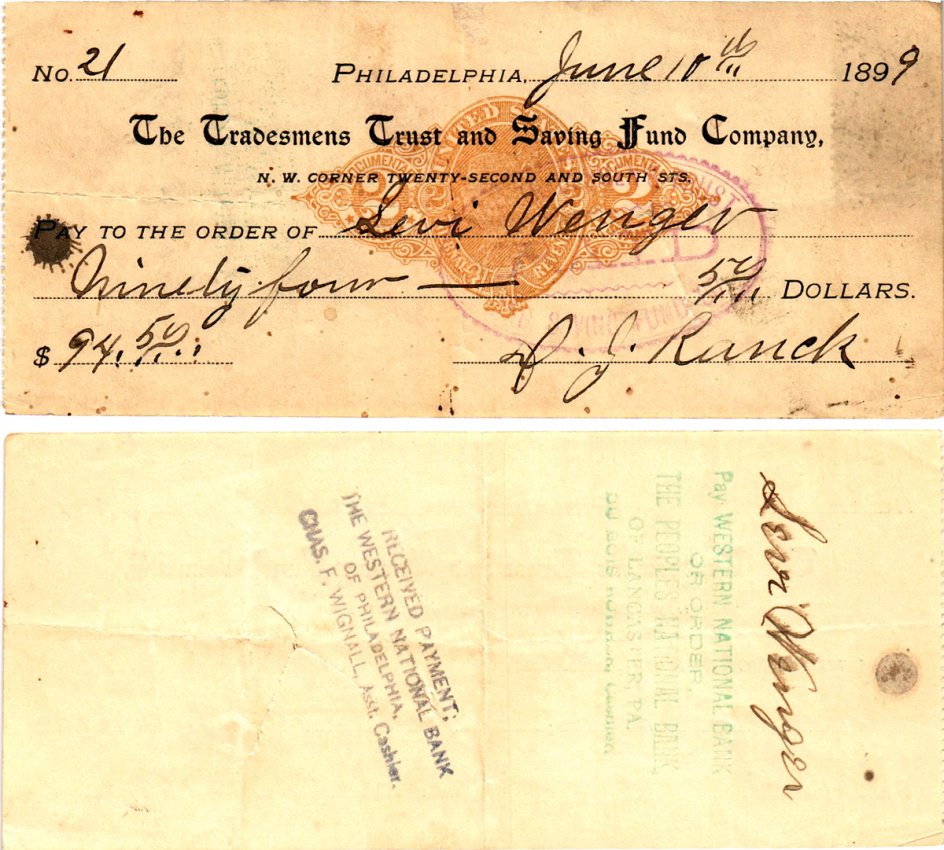 No. 21 PHILADELPHIA, June 10th 1899
The Tradesmens Trust and Saving Fund Company,
N. W. CORNER TWENTY-SECOND AND SOUTH STS.
PAY TO THE ORDER OF Levi Wenger
Ninety four — 50/100 DOLLARS.
$ 94.50/100
D. J. Ranck
UNITED STA
DOCUMENTA
2
2
SAVING FUND
Levi Wenger
Pay WESTERN NATIONAL BANK
OR ORDER,
THE PEOPLES NATIONAL BANK,
OF LANCASTER, PA.
Cashier
RECEIVED PAYMENT;
THE WESTERN NATIONAL BANK
OF PHILADELPHIA,
CHAS. F. WIGNALL, Asst. Cashier.